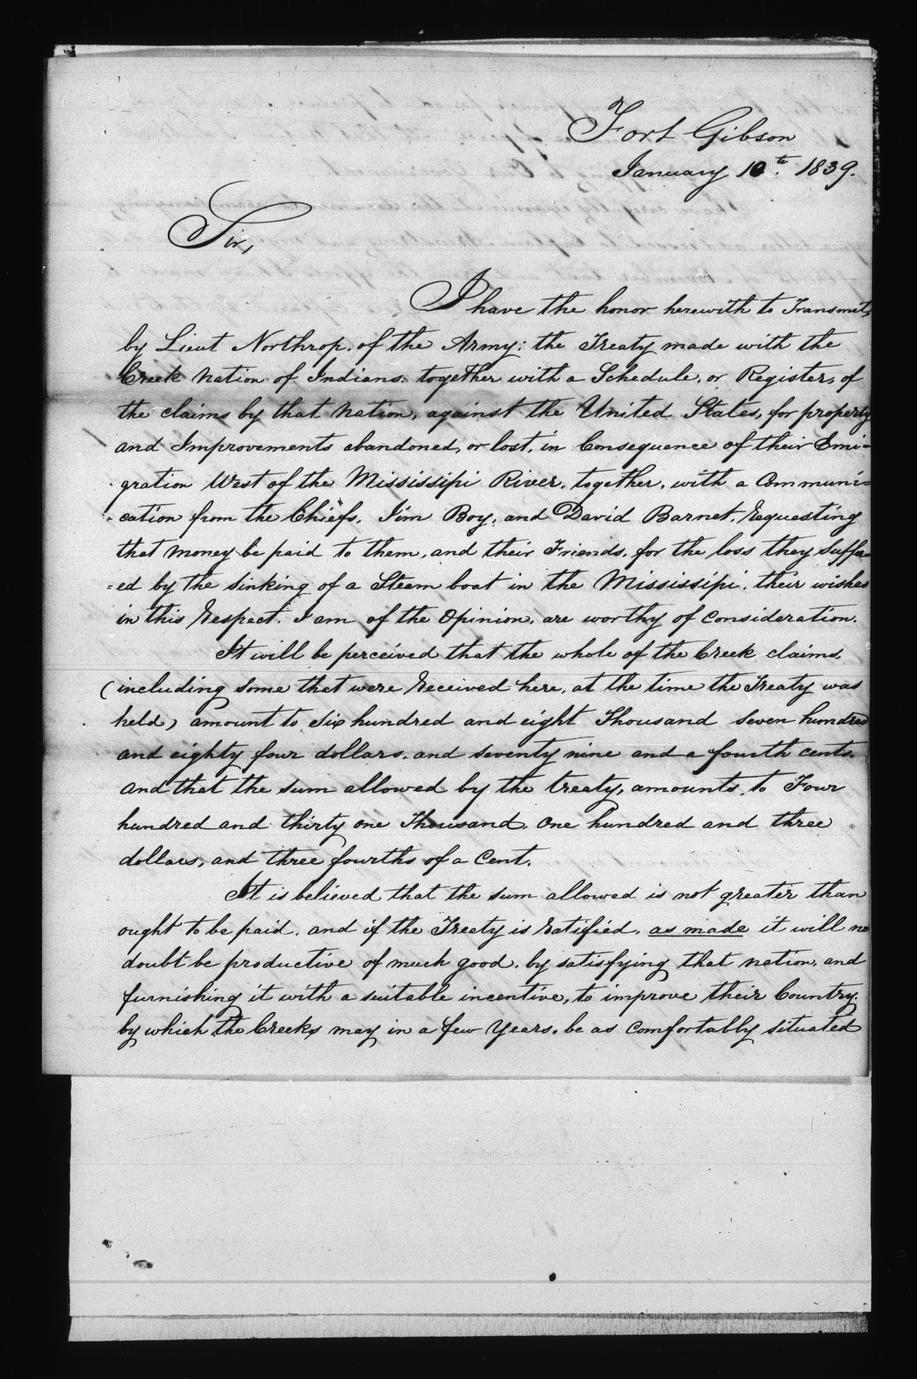 Fort Gibson
January 10th. 1839.
Sir,
I have the honor herewith to Transmit,
by Lieut Northrop, of the Army; the Treaty made with the
Creek Nation of Indians, together with a Schedule, or Register, of
the claims by that Nation, against the United States, for property
and Improvements abandoned, or lost, in Consequence of their Emi=
gration West of the Mississipi River, together, with a Communi=
cation from the Chiefs, Jim Boy, and David Barnet, Requesting
that money be paid to them, and their Friends, for the loss they suffer
=ed by the sinking of a Steam boat in the Mississipi, their wishes
in this Respect, I am of the Opinion, are worthy of Consideration.
It will be perceived that the whole of the Creek claims,
(including some that were Received here, at the time the Treaty was
held,) amount to Six hundred and eight Thousand Seven hundred
and eighty four dollars, and seventy nine and a fourth cents.
And that the sum allowed by the treaty, amounts, to Four
hundred and thirty one Thousand, One hundred and three
dollars, and three fourths of a Cent.
It is believed that the sum allowed is not greater than
ought to be paid, and if the Treaty is Ratified, as made it will no
doubt be productive of much good, by satisfying that nation, and
furnishing it with a suitable incentive, to improve their Country,
by which the Creeks may in a few years, be as comfortably situated